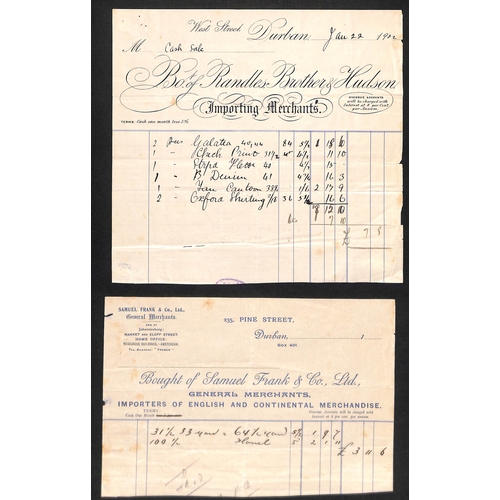 West Street Durban Jan 22 1902
M Cash Sale
Bot. of Randles Brother & Hudson,
Importing Merchants.
OVERDUE ACCOUNTS
will be charged with
Interest at 8 per Cent.
per Annum.
TERMS: Cash one month less 5%
2 Galatea 40,44 84
1 " Print
1 "
1 " B Denim 41 16 3
1 " 2 17 9
2 " Oxford Shirting 36 16 6
12 10
7 10
£ 7 8
SAMUEL FRANK & Co., Ltd.,
General Merchants.
AND AT
Johannesburg:
MARKET AND ELOFF STREET.
HOME OFFICE:
235, PINE STREET,
Durban, 1
BOX 401
Bought of Samuel Frank & Co., Ltd.,
GENERAL MERCHANTS,
IMPORTERS OF ENGLISH AND CONTINENTAL MERCHANDISE.
TERMS
Cash One Month
Overdue Accounts will be charged
Interest at 8 per cent. per annum.
31½ 33 yard = 64½ yard 1 9 7
100 5 2 1 11
£ 3 11 6